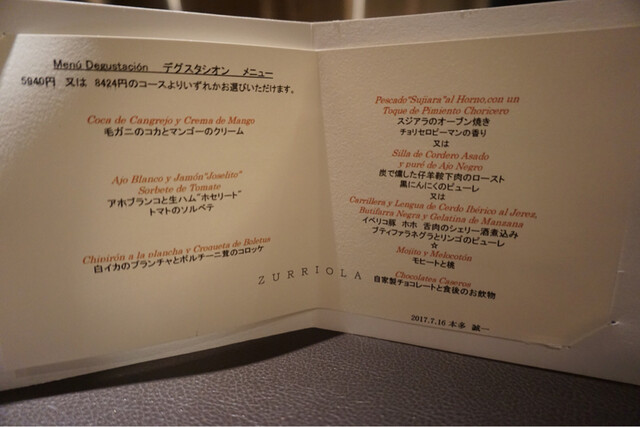 Menú Degustación デグスタシオン メニュー
5940円 又は 8424円のコースよりいずれかお選びいただけます。
Coca de Cangrejo y Crema de Mango
毛ガニのコカとマンゴーのクリーム
Ajo Blanco y Jamón"Joselito"
Sorbete de Tomate
アホブランコと生ハム"ホセリート"
トマトのソルベテ
Chipirón a la plancha y Croqueta de Boletus
白イカのプランチャとポルチーニ茸のコロッケ
ZURRIOLA
Pescado"Sujiara"al Horno,con un
Toque de Pimiento Choricero
スジアラのオーブン焼き
チョリセロピーマンの香り
又は
Silla de Cordero Asado
y puré de Ajo Negro
炭で燻した仔羊鞍下肉のロースト
黒にんにくのピューレ
又は
Carrillera y Lengua de Cerdo Ibérico al Jerez,
Butifarra Negra y Gelatina de Manzana
イベリコ豚 ホホ 舌肉のシェリー酒煮込み
ブティファラネグラとリンゴのピューレ
☆
Mojito y Melocotón
モヒートと桃
Chocolatea Caseros
自家製チョコレートと食後のお飲物
2017.7.16 本多 誠一